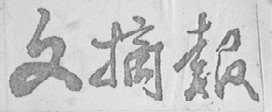 文摘報